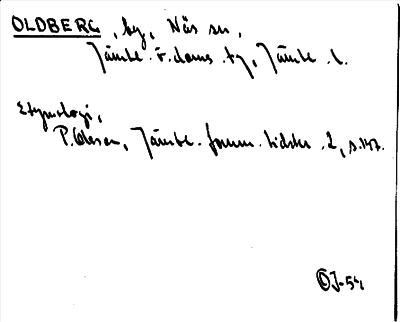 OLDBERG, by, Näs sn,
Jämtl. v. doms. tg, Jämtl. l.
Etymologi,
P. Olsson, Jämtl. fornm. tidskr. 2, s. 147.
ÖJ-54